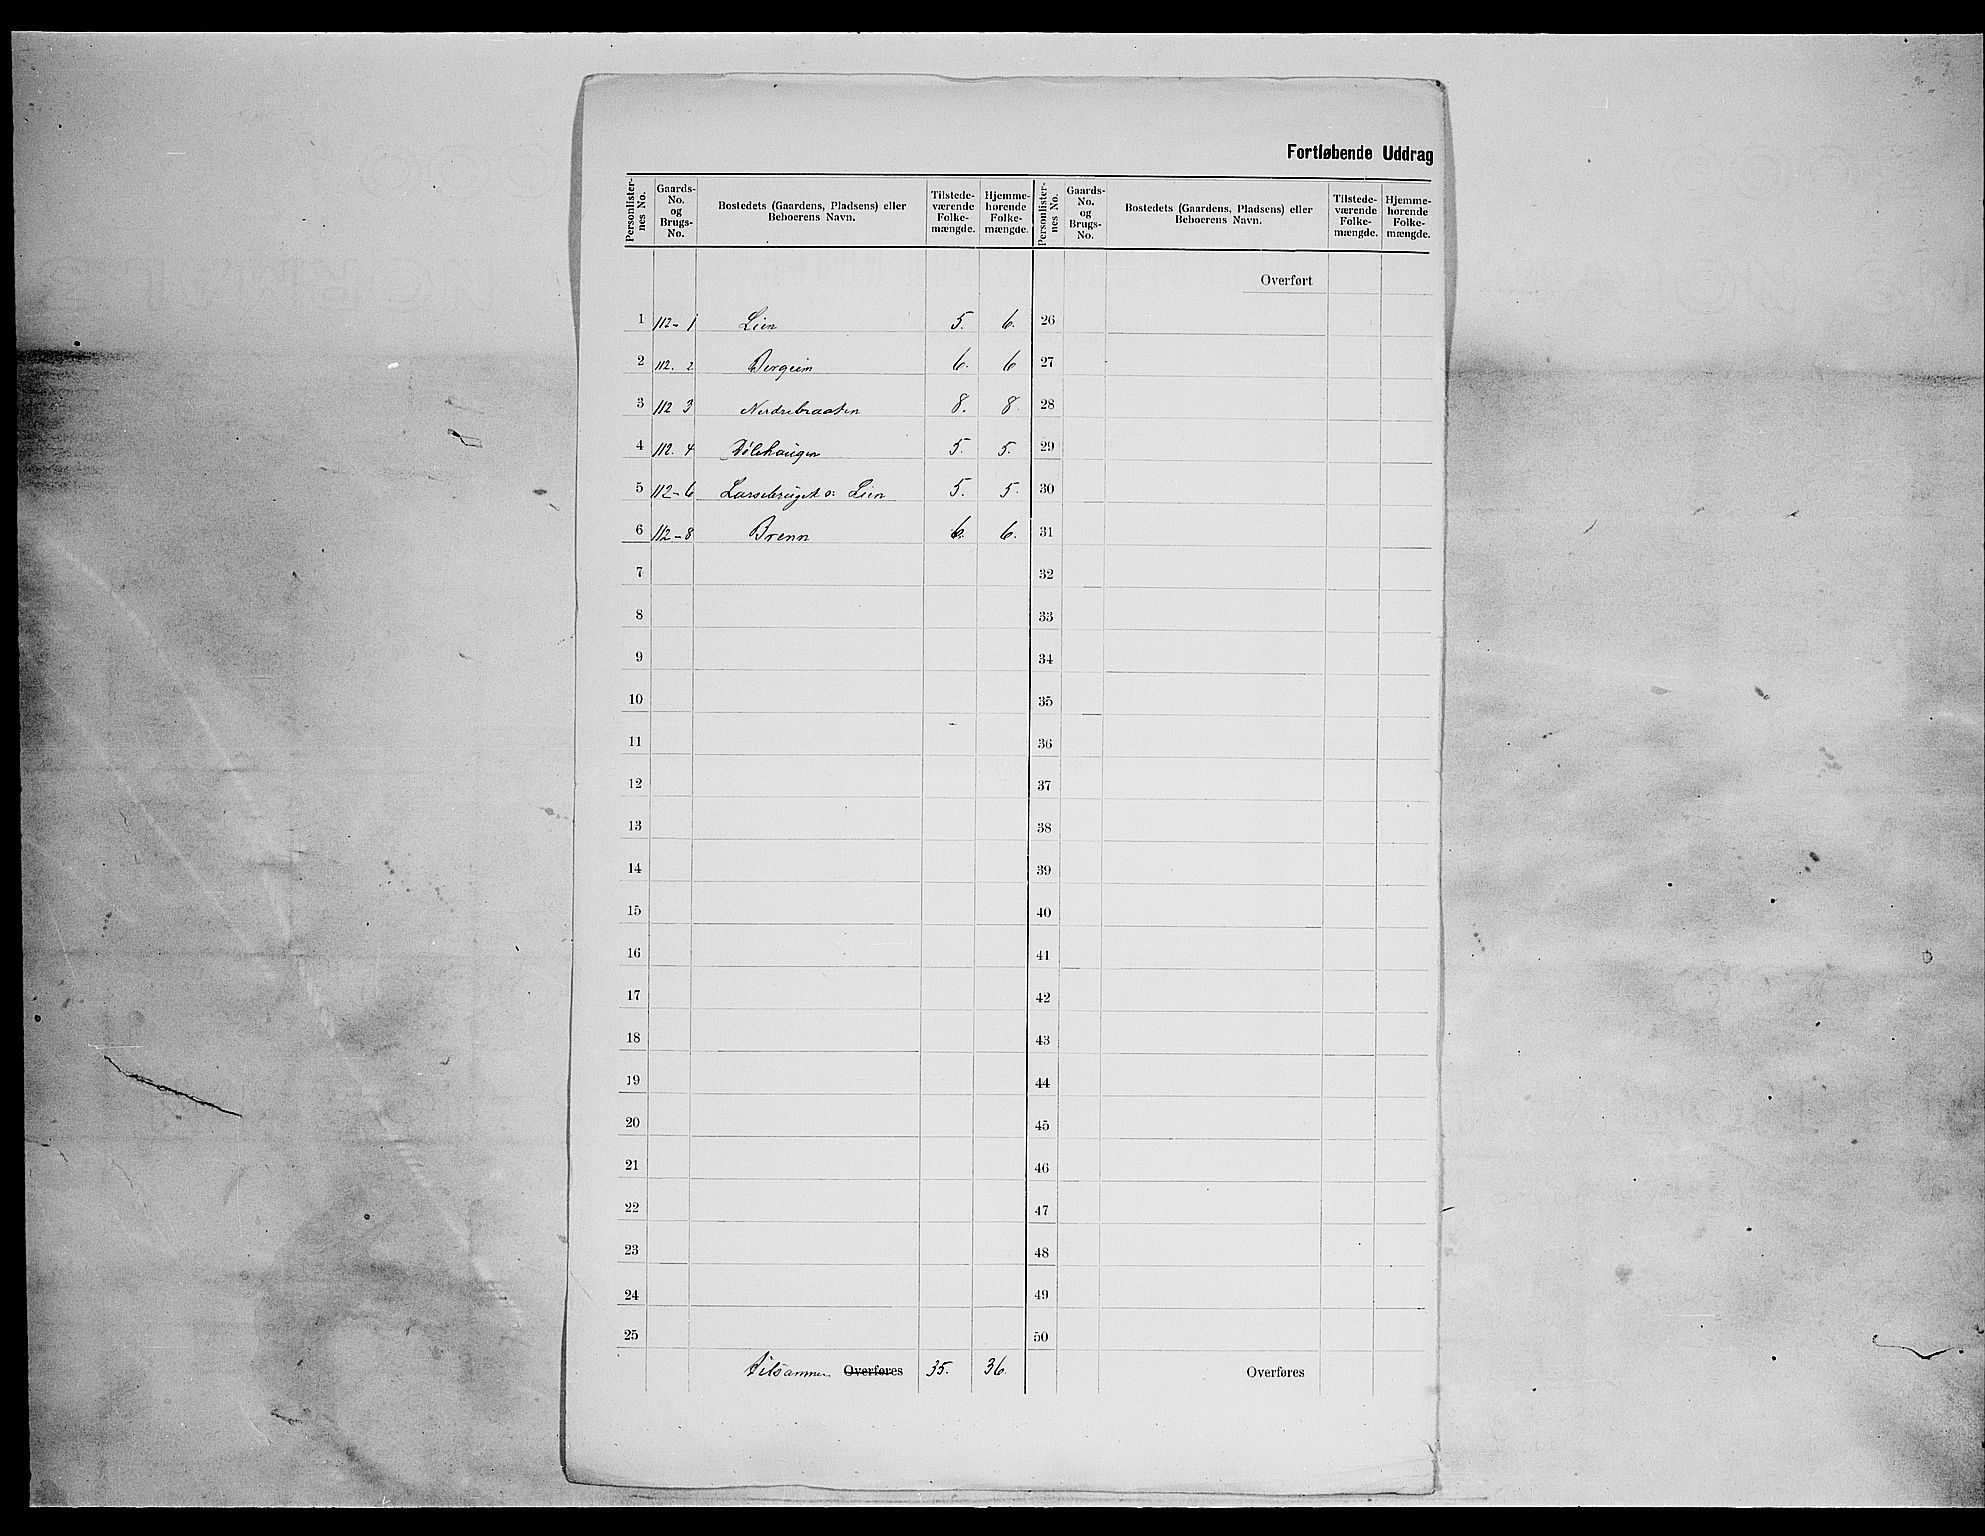 Fortløbende Uddrag
Personlisternes No. Gaards-No. og Brugs-No. Bostedets (Gaardens, Pladsens) eller Beboerens Navn. Tilstedeværende Folkemængde. Hjemmehørende Folkemængde. Personlisternes No. Gaards-No. og Brugs-No. Bostedets (Gaardens, Pladsens) eller Beboerens Navn. Tilstedeværende Folkemængde. Hjemmehørende Folkemængde.
Overført
1 112-1 Lien 5. 6. 26
2 112. 2 Bergeim 6. 6 27
3 112 3 Nerdrebraaten 8. 8. 28
4 112. 4 Dølehaugen 5. 5. 29
5 112-6 Larsebruget o: Lien 5. 5. 30
6 112-8 Brenn 6. 6. 31
7 32
8 33
9 34
10 35
11 36
12 37
13 38
14 39
15 40
16 41
17 42
18 43
19 44
20 45
21 46
22 47
23 48
24 49
25 50
Tilsammen Overføres 35. 36. Overføres